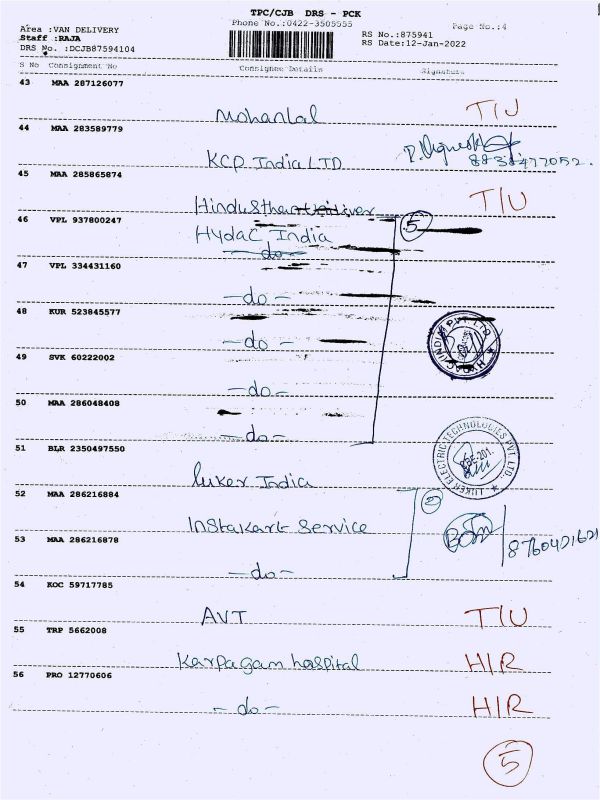 TPC/CJB DRS - PCK
Area :VAN DELIVERY Phone No.:0422-3505555 Page No.:4
Staff :RAJA RS No.:875941
DRS No. :DCJB87594104 RS Date:12-Jan-2022
S No Consignment No Consignee Details Signature
43 MAA 287126077
Mohanlal T/U
44 MAA 283589779
KCP India LTD 8838477052.
45 MAA 285865874
Hindusthan Uniliver T/U
46 VPL 937800247 5
Hydac India
-do-
47 VPL 334431160
-do-
48 KUR 523845577
-do- HYDAC (INDIA) PVT. LTD
49 SVK 60222002
-do-
50 MAA 286048408
-do-
51 BLR 2350497550
luker India LUKER ELECTRIC TECHNOLOGIES PVT. LTD.
52 MAA 286216884 2
Instakart Service
53 MAA 286216878 8760421621
-do-
54 KOC 59717785
AVT T/U
55 TRP 5662008
Karpagam hospital H/R
56 PRO 12770606
-do- H/R
5